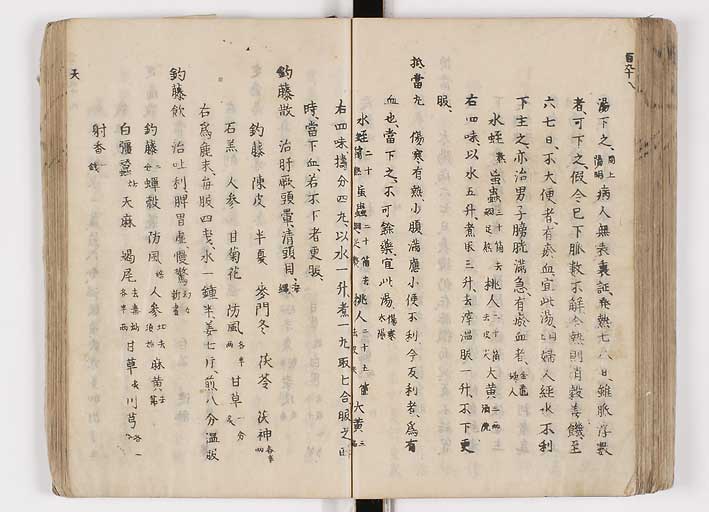 湯下之 同上 陽明 病人無表裏証発熱七八日雖脈浮数
者可下之、假令已下脈数不解合熱則消穀善饑至
六七日、不大便者、有瘀血、宜此湯、婦人経水不利
下主之、亦治男子膀胱満急有瘀血者
水蛭 熬 虻蟲 三十箇 去翅足熬 桃人 二十箇 去皮尖 大黄 三兩 酒洗
右四味、以水五升、煮取三升、去滓温服一升、不下更
服、
抵當丸 傷寒、有熱、小腹満應小便不利、今反利者、為有
血也當下之、不可餘薬、宜此湯 傷寒 太陽
水蛭 二十箇 熬 虻蟲 二十箇 去翅足熬 桃人 二十五箇 去皮尖 大黄 三兩
右四味、擣分四丸、以水一升、煮一丸取七合服之
時、當下血、若不下者更服、
釣藤散 治肝厥頭暈、清頭目、
釣藤 陳皮 半夏 麥門冬 茯苓 茯神 各半兩
石羔 人参 甘菊花 防風 各半兩 甘草 一分 炙
右為麁末、毎服四戔、水一鍾半、姜七片、煎八分温服
釣藤飲 治吐利、脾胃虚、慢驚
釣藤 蟬殼 防風 人参 麻黄
白殭蠶 天麻 蝎尾 去毒 各半兩 甘草 炙 川芎 各一
射香
百六十八
天